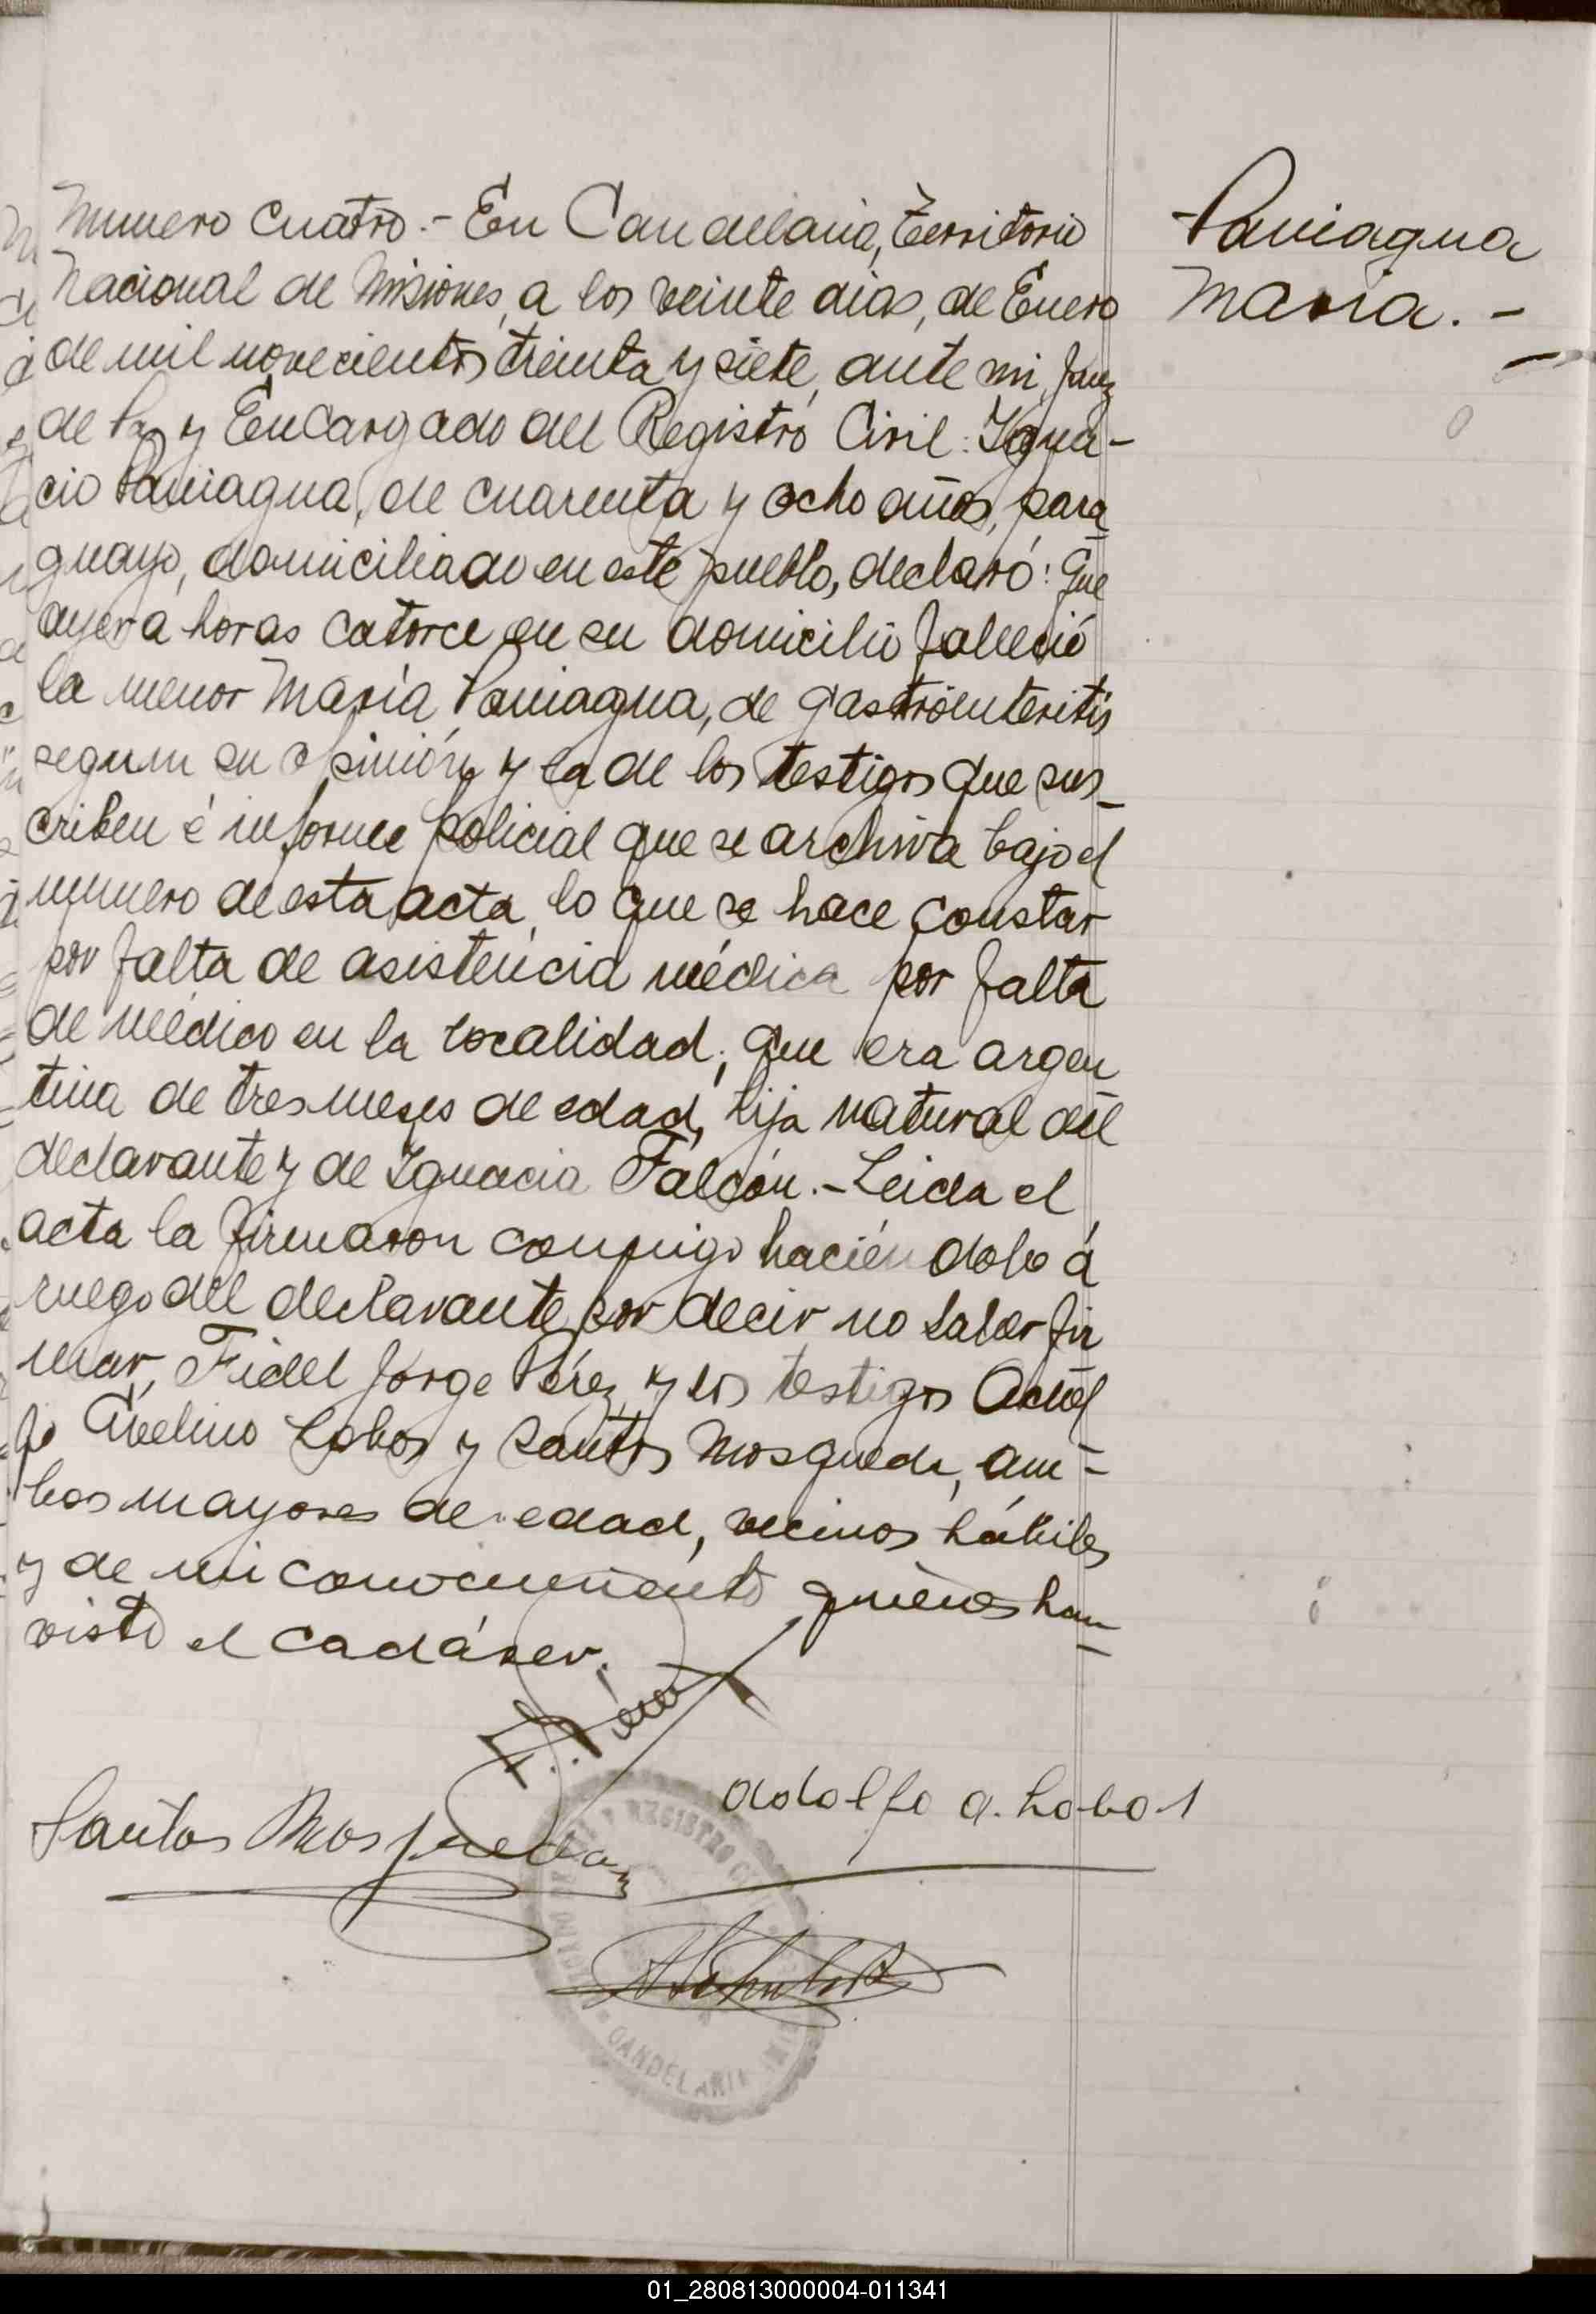 Numero Cuatro.- En Candelaria, Territorio
Nacional de Misiones, a los veinte dias, de Enero
de mil novecientos treinta y siete, ante mi, Juez
de Paz y Encargado del Registro Civil: Igna-
cio Paniagua, de cuarenta y ocho años, para
guayo, domiciliado en este pueblo, declaró: Que
ayer a horas catorce en su domicilio falleció
la menor María Paniagua, de gastroenteritis
segun su opinión y la de los testigos que sus-
criben é informe policial que se archiva bajo el
numero de esta acta, lo que se hace constar
por falta de asistencia médica por falta
de médico en la localidad; que era argen
tina de tres meses de edad, hija natural del
declarante y de Ignacia Falcón.- Leida el
acta la firmaron conmigo haciéndolo á
ruego del declarante por decir no saber fir
mar, Fidel Jorge Pérez, y los testigos Adol
fo Avelino Lobos y Santos Mosqueda, am-
bos mayores de edad, vecinos hábiles
y de mi conocimiento quienes han
visto el cadáver.
Paniagua
Maria.-
F. Pérez
Santos Mosqueda
adolfo a. Lobos
REGISTRO CIVIL
CANDELARIA
01_280813000004-011341